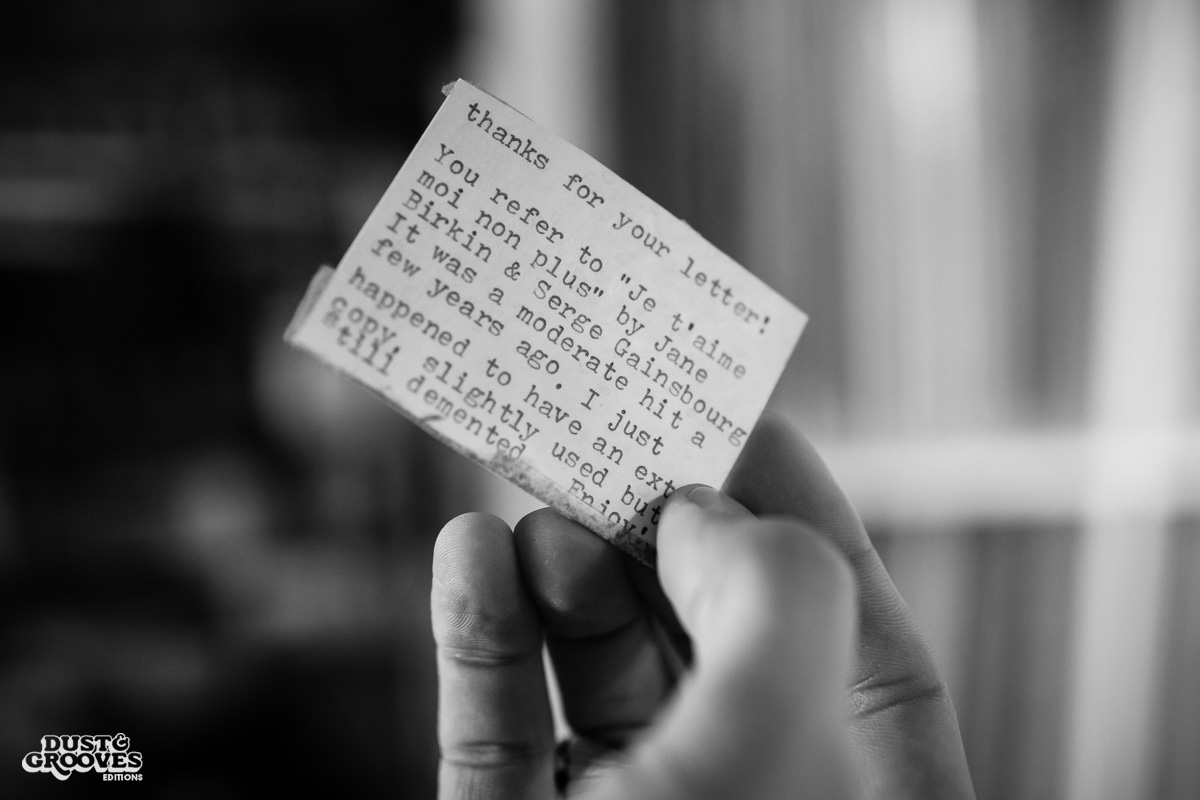 thanks for your letter!
You refer to "Je t'aime
moi non plus" by Jane
Birkin & Serge Gainsbourg
It was a moderate hit a
few years ago. I just
happened to have an ext
copy, slightly used but
still demented Enjoy!
DUST &
GROOVES
EDITIONS